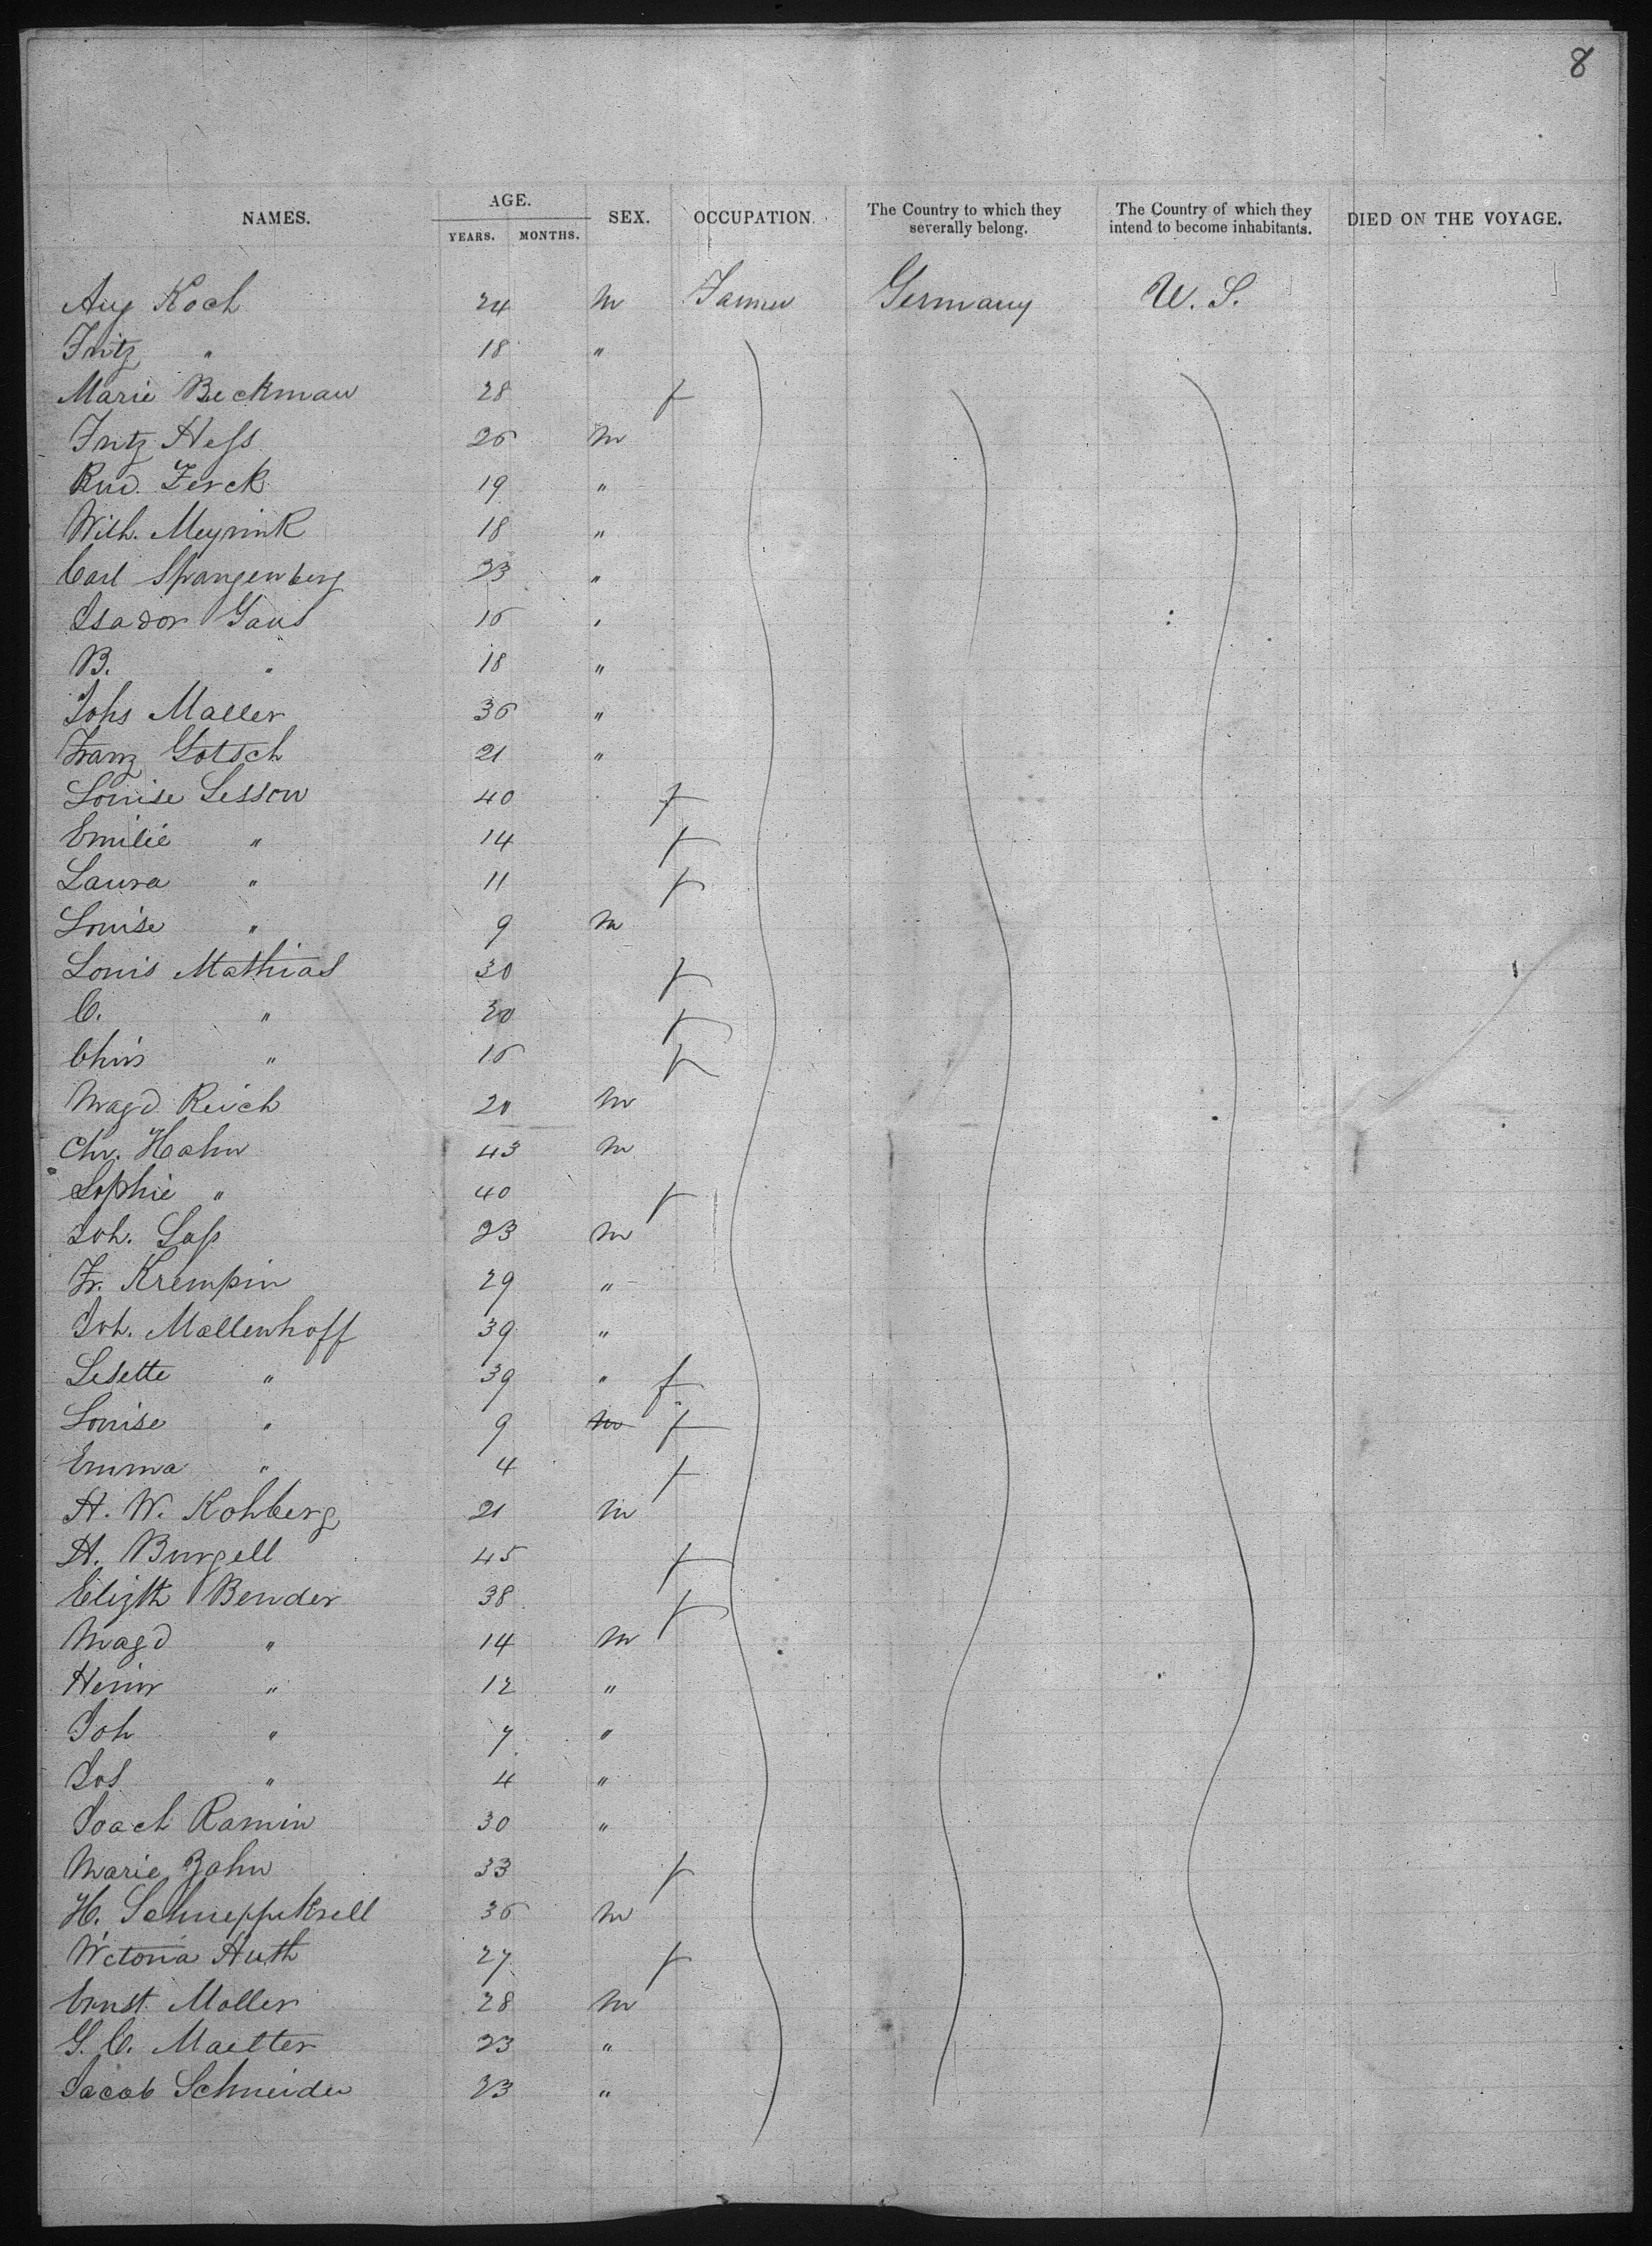 8
NAMES. AGE. YEARS. MONTHS. SEX. OCCUPATION. The Country to which they severally belong. The Country of which they intend to become inhabitants. DIED ON THE VOYAGE.
Aug Koch 24 m Farmer Germany U. S.
Fritz " 18 "
Marie Beckman 28 f
Fritz Hess 26 m
Rud. Zerck 19 "
Wilh. Meyrink 18 "
Carl Spangenberg 23 "
Isador Gans 16 "
B. " 18 "
Johs Maller 36 "
Franz Gotsch 21 "
Louise Lesson 40 f
Emilie " 14 f
Laura " 11 f
Louise " 9 m
Louis Mathias 30 f
C. " 20 f
Chris " 16 f
Magd Reich 20 m
Chr. Hahn 43 m
Sophie " 40 f
Joh. Lass 23 m
Fr. Krempin 29 "
Joh. Mallenhoff 39 "
Lisette " 39 " f
Louise " 9 m f
Emma " 4 f
H. W. Kohberg 21 m
H. Burgell 45 f
Elizth Bender 38 f
Magd " 14 m
Heinr " 12 "
Joh " 7 "
Jos " 4 "
Joach Ramin 30 "
Marie Zahn 33 f
H. 36 m
Victoria Huth 27 f
Ernst Moller 28 m
G. C. Maelter 23 "
Jacob Schneider 23 "